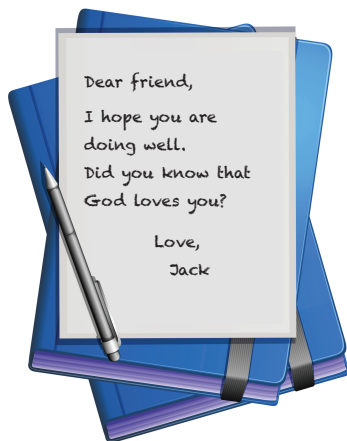 Dear friend,
I hope you are
doing well.
Did you know that
God loves you?
Love,
Jack